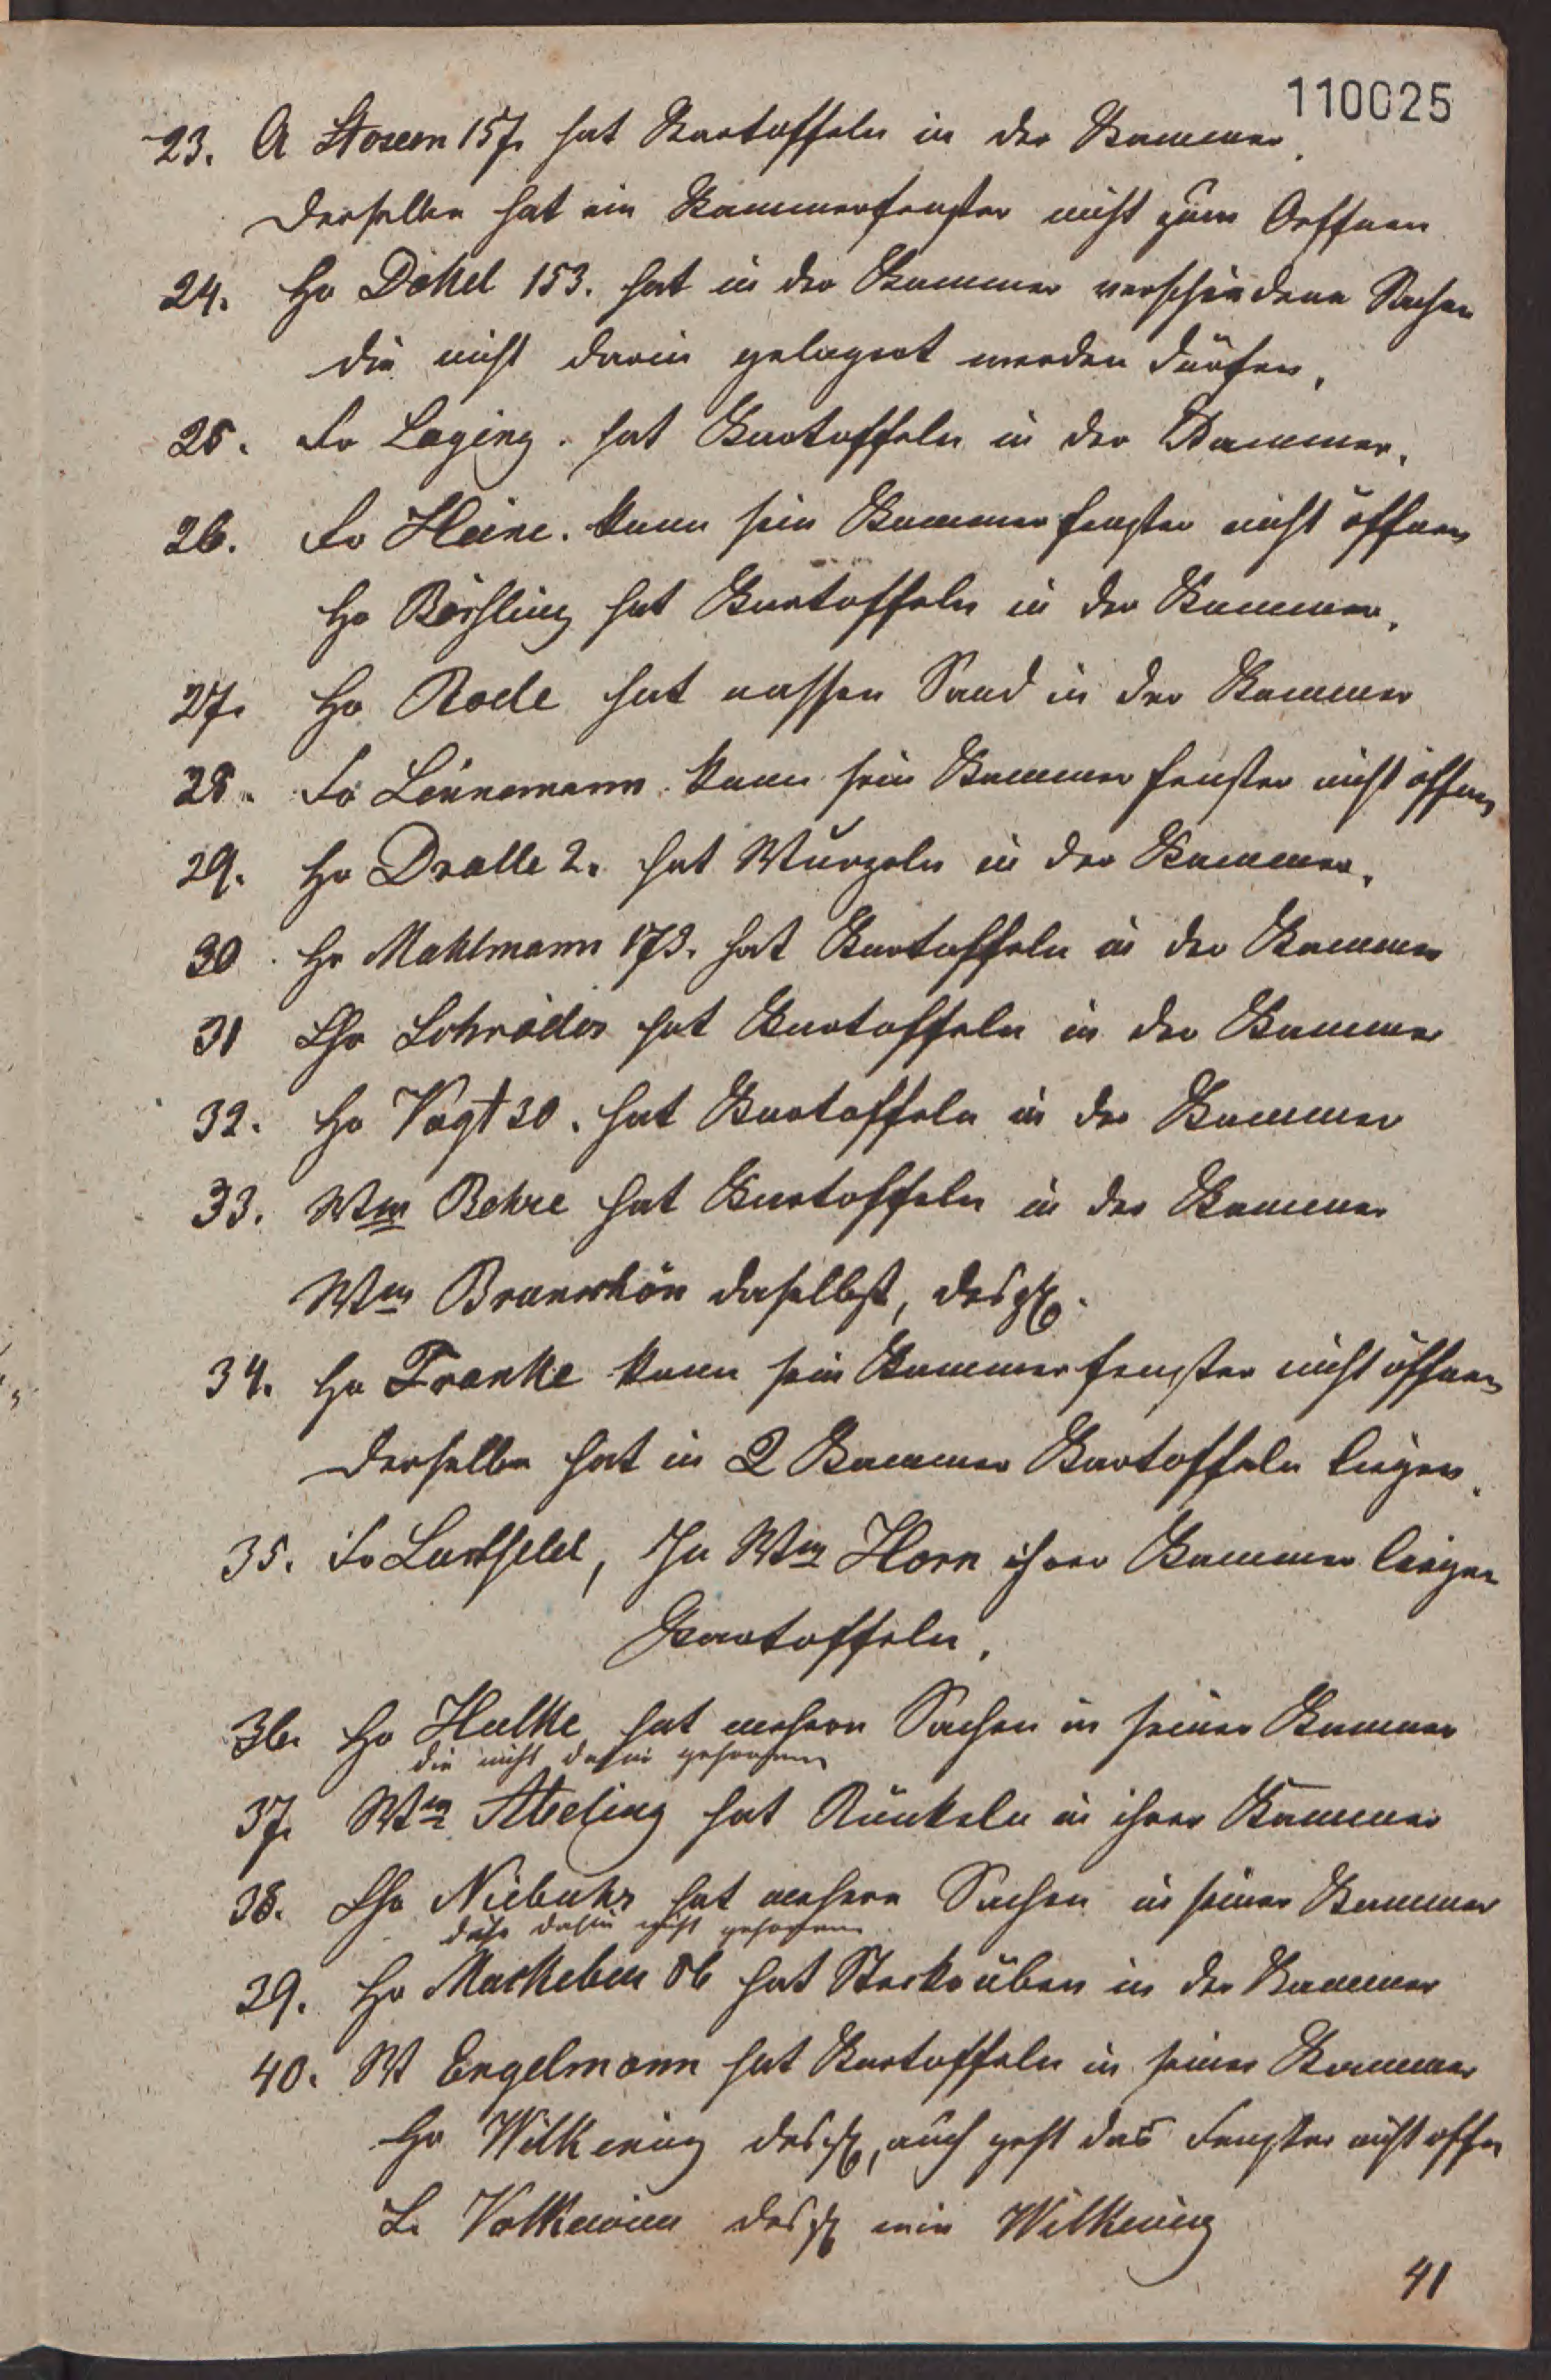 110025
23. A 157. hat Kartoffeln in der Kammer.
Derselbe hat ein Kammerfenster nicht zum Oeffnen
24. Hr Döttel 153. hat in der Kammer verschiedene Sachen
die nicht darin gelagert werden dürfen.
25. Fr Laging. hat Kartoffeln in der Kammer.
26. Fr Heine. kann sein Kammerfenster nicht öffnen
Hr Bößling hat Kartoffeln in der Kammer.
27. Hr Rode hat nassen Sand in der Kammer
28. Fr Linnemann. kann sein Kammerfenster nicht öffnen
29. Hr Dralle 2. hat Wurzeln in der Kammer.
30. Hr Mahlmann 173. hat Kartoffeln in der Kammer
31 Chr Schröder hat Kartoffeln in der Kammer
32. Hr Vogt 30. hat Kartoffeln in der Kammer
33. Wwe Behre hat Kartoffeln in der Kammer
Wwe daselbst, desgl.
34. Hr Franke kann sein Kammerfenster nicht öffnen
Derselbe hat in 2 Kammer Kartoffeln liegen.
35. Fr , In Wwe Horn ihrer Kammer liegen
Kartoffeln.
36. Hr hat mehere Sachen in seiner Kammer
die nicht dahin gehören
37. Wwe Abeling hat Runkeln in ihrer Kammer
38. Chr Niebuhr hat mehere Sachen in seiner Kammer
dahin nicht gehören
39. Hr Makeben 86 hat Steckrüben in der Kammer
40. W Engelmann hat Kartoffeln in seiner Kammer
Hr Wilkening desgl, auch geht das Fenster nicht offen
L. Volkening desgl wie Wilkening
41